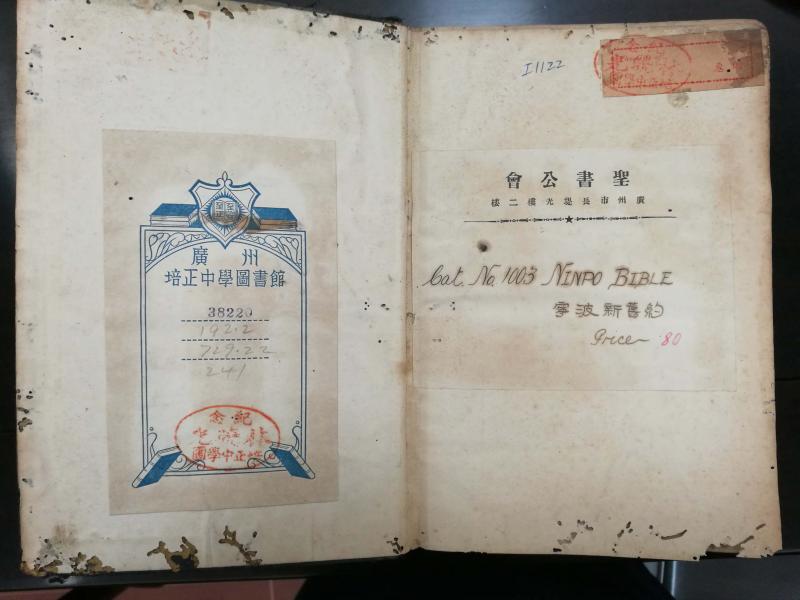 廣州
培正中學圖書館
38220
192.2
729.22
241
紀念
培正中學圖
I1122
聖書公會
廣州市長堤光樓二樓
Cat. No. 1003 NINPO BIBLE
寧波新舊約
Price 80